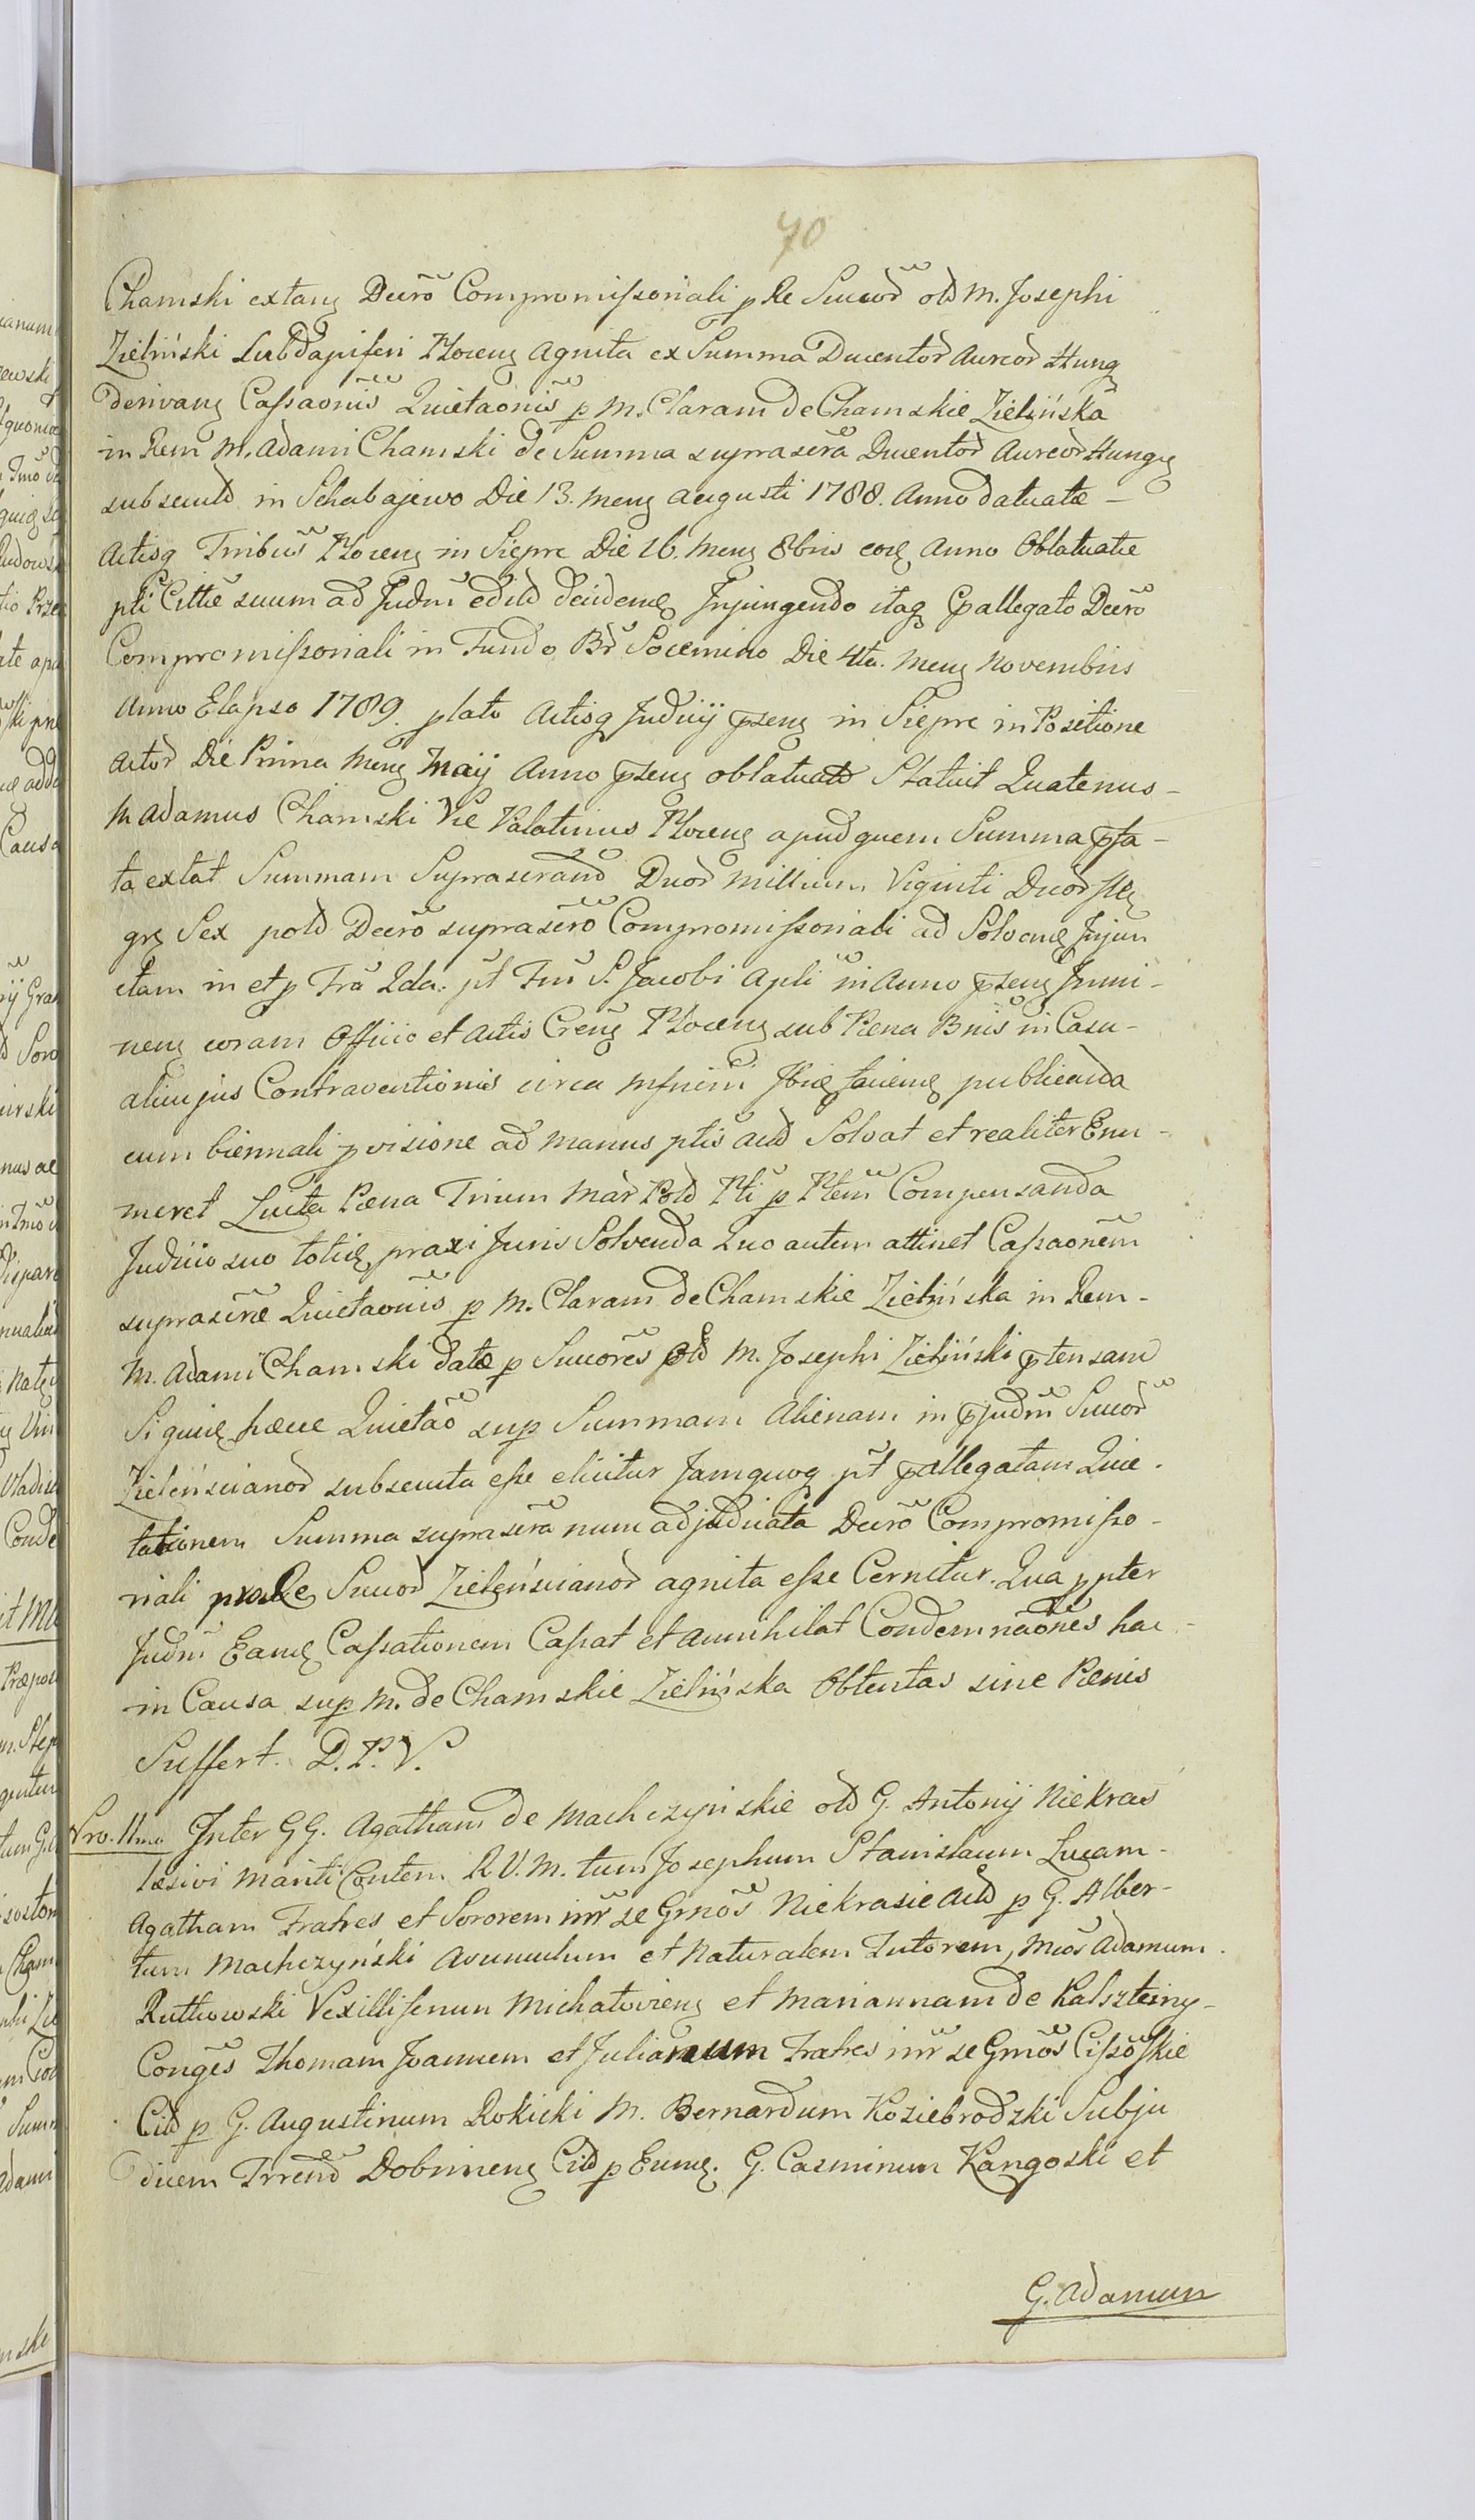 70
Chamski extang Decrõ Compromissoriali p Re Succord old M. Josephi
Zieliński Subdapiferi Plocens agnita ex Summa Ducentor Aureor Hung
derivang Cassaonis Quietaonis p M. Claram de Chamskie Zielińska
in Rem M. Adami Chamski de Summa suprascra Ducentor Aureor Hung
subsecut in Schabajewo Die 13. Mens Augusti 1788. Anno datuatæ -
Actisq Tribus Plocens in Siepre Die 16. Mens 8bris eoq Anno Oblatuatæ
pti Citte suum ad Judm edit decidenq Injungendo itaq pallegato Decrõ
Compromissoriali in Fundo Br Socemino Die 4ta. Mens Novembris
Anno Elapso 1789. plato Actisq Judicij psens in Siepre in Positione
Actor Die Prima Mens Maij Anno psens oblatuato Statuit Quatenus -
M Adamus Chamski Vie Palatinus Plocens apud quem Summa pfa -
ta extat Summam Suprascrand Duor Millium Viginti Duor fl
gr Sex pold Decrõ suprascrõ Compromissoriali ad Solvend Injun
ctam in et p Tra 2da. pt Fm S. Jacobi Apli in Anno psens Immi -
nens coram Officio et Actis Crens Plocens sub Pena Bnis in Casu -
alicujus Contraventionis circa Mfnim Ibiq faciend publicanda
cum biennali pvisione ad manus ptis Act Solvat et realiter Enu -
meret Luita Pæna Trium Mar Pold Pti p Ptem Compensanda
Judicio suo toties praxi Juris Solvenda Quo autem attinet Cassaonem
suprascræ Quietaonis p M. Claram de Chamskie Zielińska in Rem -
M. Adami Chamski datæ p Succores old M. Josephi Zieliński ptensam
Siquid hæcce Quietaõ sup Summam Alienam in pjudm Succor
Zieleńscianor subsecuta esse elicitur Jamquoq pt pallegatam Quie -
tationem Summa suprascra nunc adjudicata Decrõ Compromisso -
riali pro Re Succor Zieleńscianor agnita esse Cernitur. Qua ppter
Judm Eamq Cassationem Cassat et annihilat Condemnaones hac -
in Causa sup M. de Chamskie Zielińska Obtentas sine Penis
Suffert. D. P. V.
Pro. 11mo Inter GG. Agatham de Machczyńskie old G. Antonij Niekras
læsivi Mariti Contem R V. M. tum Josephum Stanislaum Lucam -
Agatham Fratres et Sororem inr se Grnos Niekrasie Act p G. Alber -
tum Machczyński Avunculum et Naturalem Tutorem, Mcos Adamum
Rutkowski Vexilliferum Michaloviens et Mariannam de Kalszteiny -
Conges Thomam Joannem et Julianum Fratres inr se Grnos Cissoskie
Cit p G. Augustinum Rokicki M. Bernardum Koziebrodzki Subju
dicem Trrend Dobrinens Cit p Eumq. G. Casmirum Kangoski et
G. Adamum